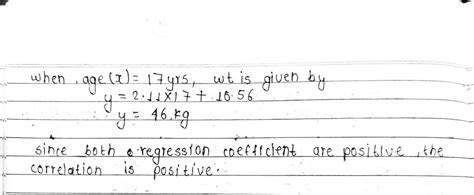 when , age (x) = 17 yrs, wt is given by
y = 2.11×17 + 10.56
y = 46.kg
since both regression coefficient are positive , the
correlation is positive.